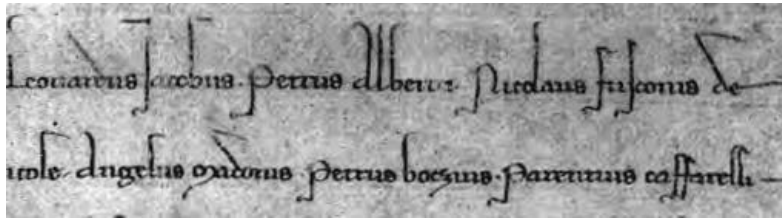 Leonardus Jacobus. Petrus Alberti. Nicolaus fusconis de
Angelus Petrus boezius. Parentius caffarelli